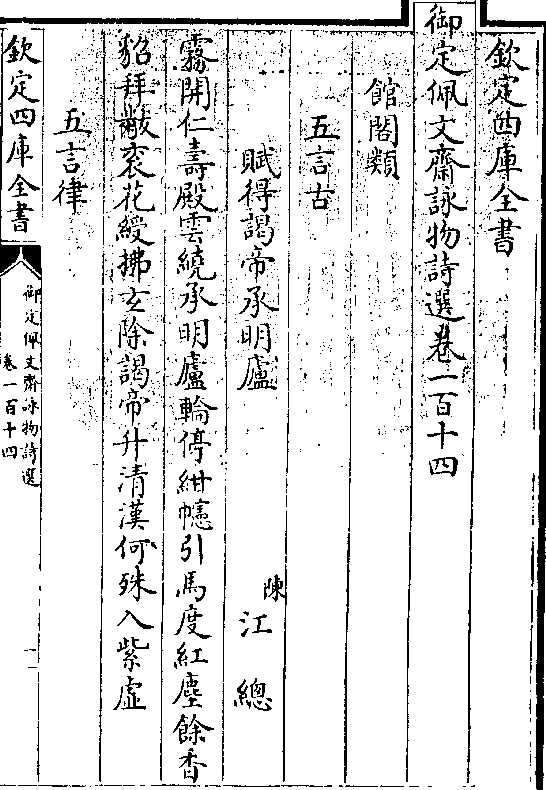 欽定四庫全書
御定佩文齋詠物詩選卷一百十四
館閣類
五言古
賦得謁帝承明廬
陳
江總
霧開仁壽殿雲繞承明廬輪停紺幰引馬度紅塵餘香
貂拜黻衮花綬拂玄除謁帝升清漢何殊入紫虛
五言律
欽定四庫全書
御定佩文齋詠物詩選
卷一百十四
一